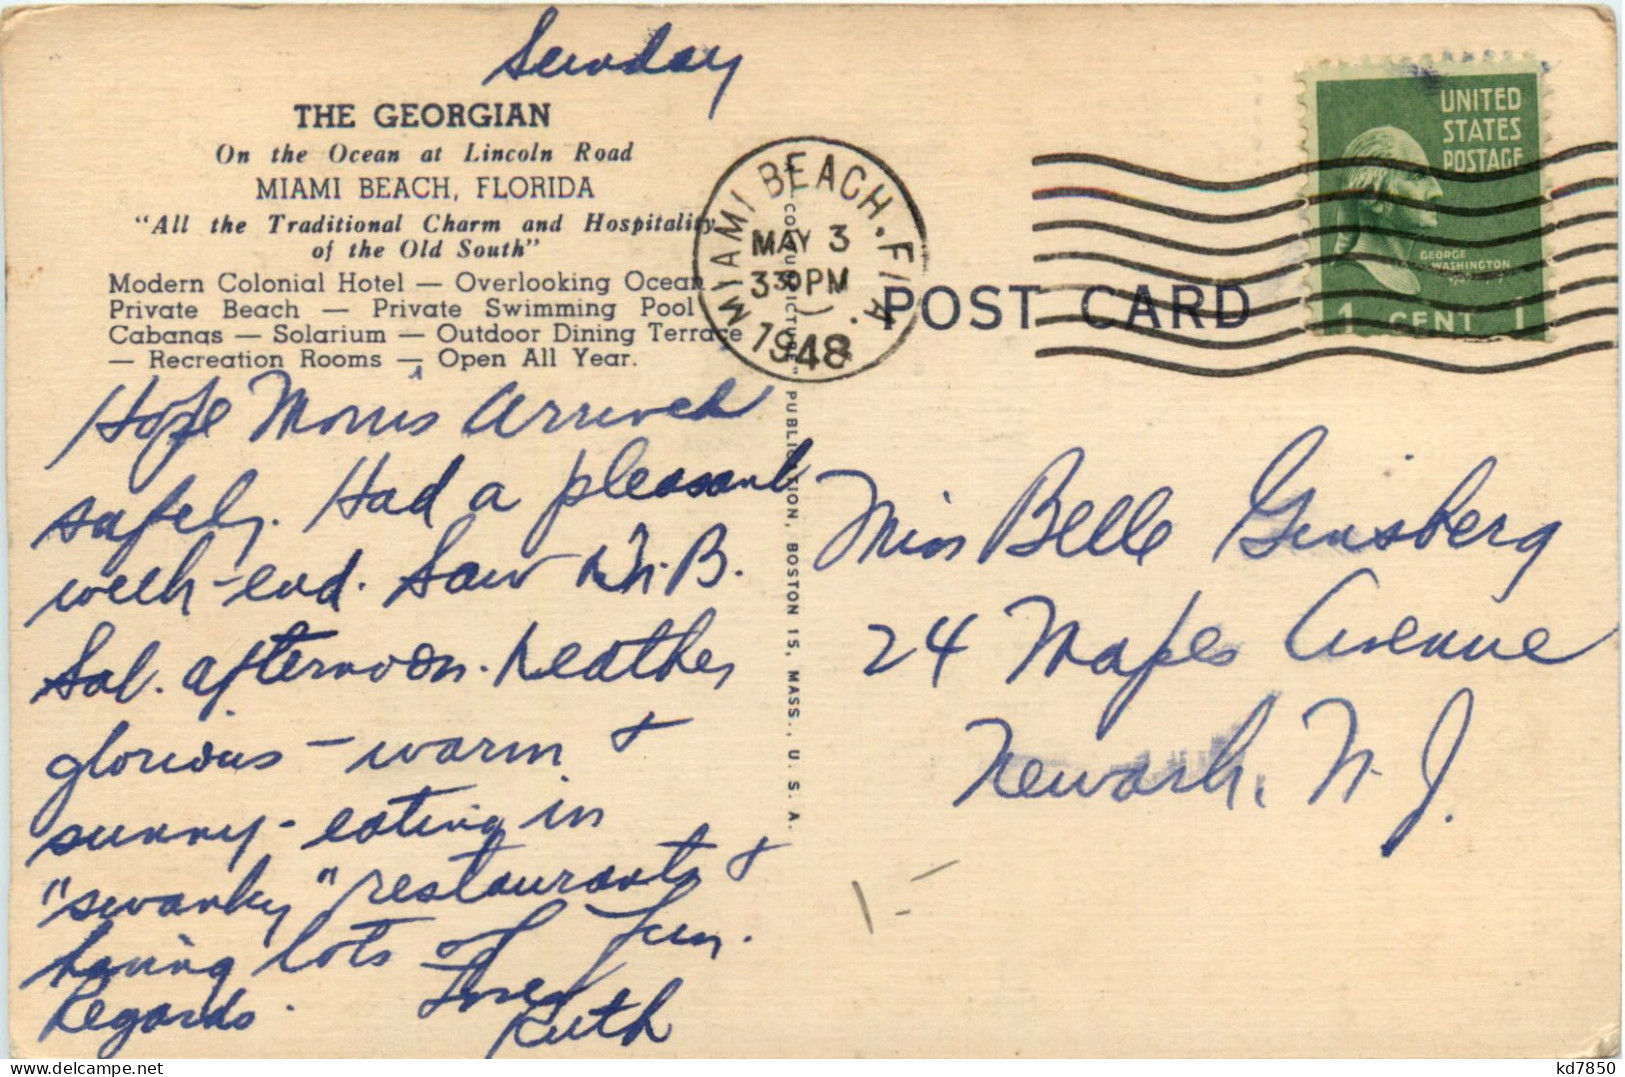 Sunday
THE GEORGIAN
On the Ocean at Lincoln Road
MIAMI BEACH, FLORIDA
"All the Traditional Charm and Hospitality
of the Old South"
Modern Colonial Hotel — Overlooking Ocean
Private Beach — Private Swimming Pool
Cabanas — Solarium — Outdoor Dining Terrace
— Recreation Rooms — Open All Year.
Hope Morris arrived
safely. Had a pleasant
week-end. Saw B.
Sat. afternoon. Weather
glorious - warm &
sunny - eating in
"swanky" restaurants &
having lots of fun.
Regards. Love
Ruth
MIAMI BEACH, FLA.
MAY 3
330PM
1948
PUBLICATION, BOSTON 15, MASS., U.S.A.
POST CARD
UNITED
STATES
POSTAGE
GEORGE
WASHINGTON
1 CENT 1
Miss Belle Ginsberg
24 Mapes Avenue
Newark, N.J.
kd7850